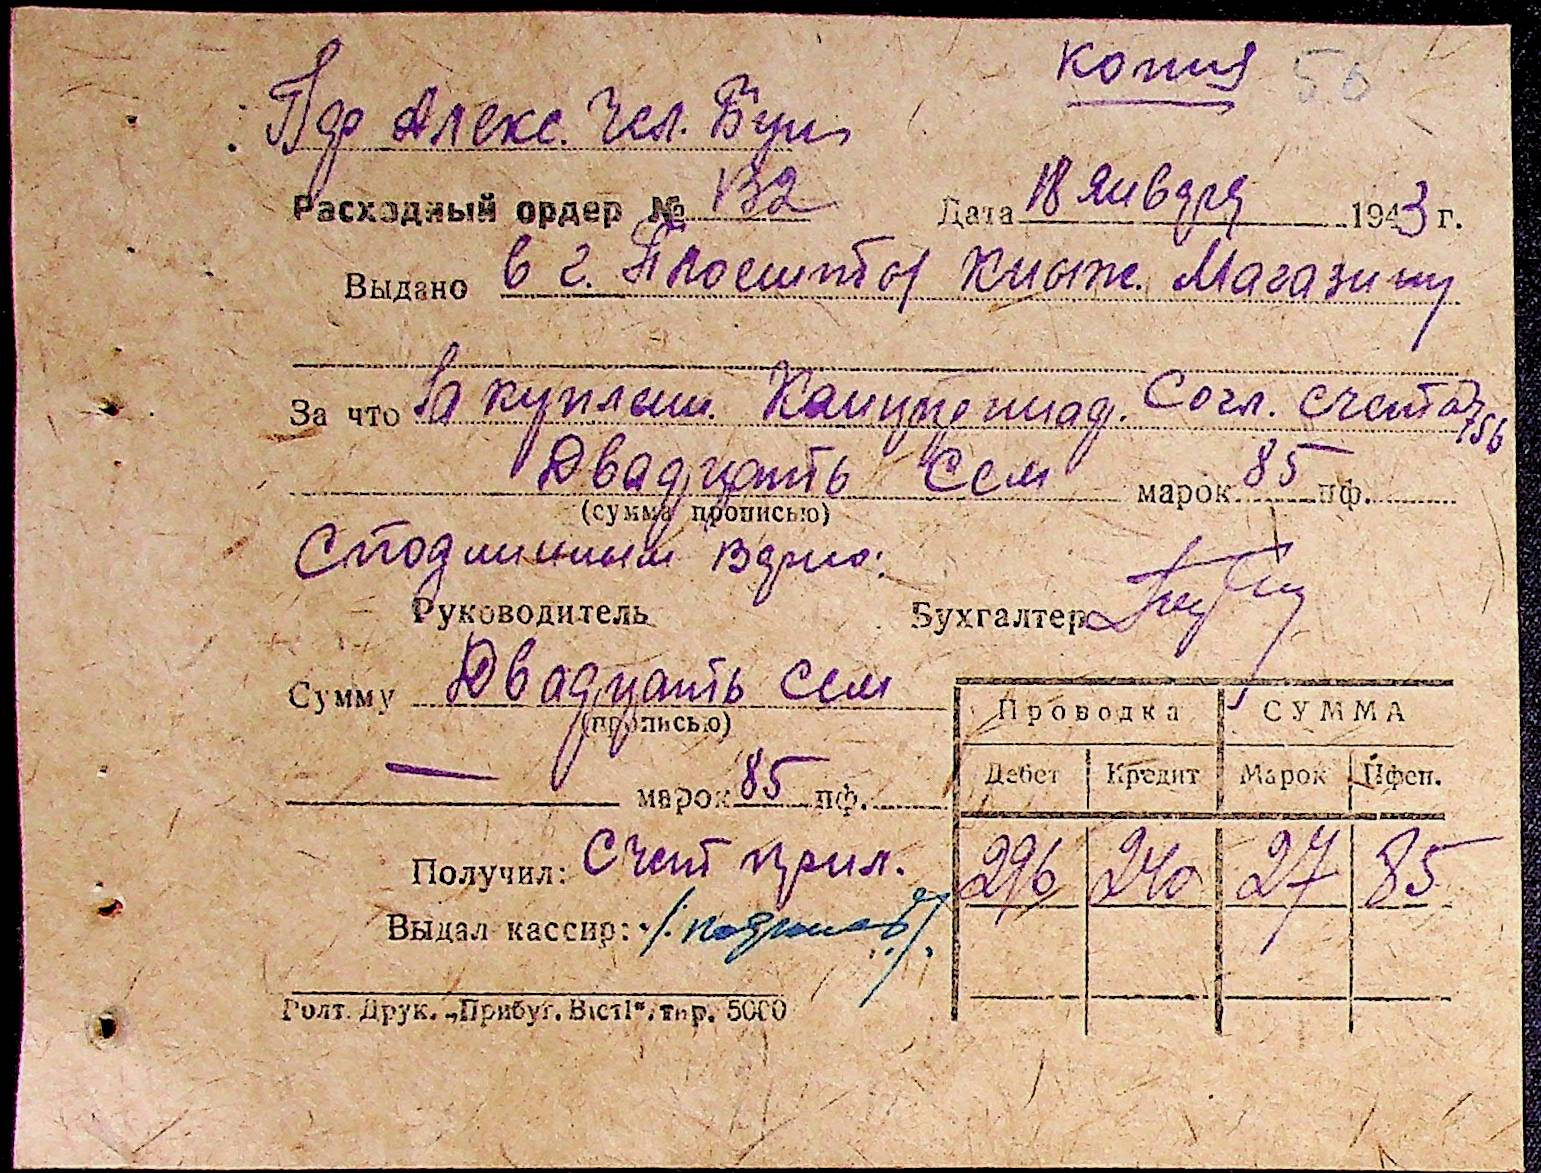 копия 56
Пдр Алекс. Чсл. Бух
Расходный ордер № 132 Дата 18 января 1943 г.
Выдано в г. книж. Магазину
За что За куплен. Канц. Согл. счета 756
Двадцать сем марок 85 пф.
(сумма прописью)
С подлинным верно:
Руководитель Бухгалтер
Сумму Двадцать сем
(прописью)
— марок 85 пф.
Проводка СУММА
Дебет Кредит Марок Пфен.
296 240 27 85
Получил: Счет прил.
Выдал кассир: /подпись/.
Голт. Друк. „Прибуг. Вісті“. тир. 5000